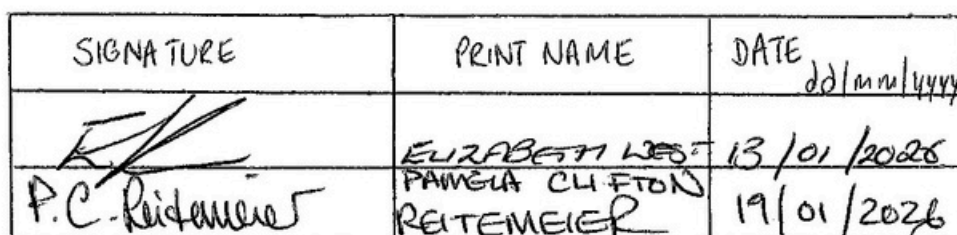 SIGNATURE PRINT NAME DATE dd/mm/yyyy
ELIZABETH WEST 13/01/2026
P.C. Reitemeier PAMELA CLIFTON REITEMEIER 19/01/2026